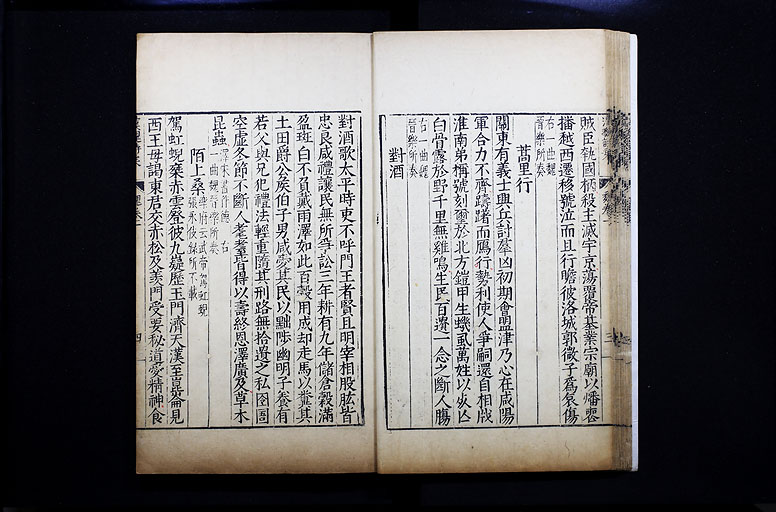 賊臣執國柄殺主滅宇京蕩覆帝基業宗廟以燔喪
播越西遷移號泣而且行瞻彼洛城郭微子為哀傷
右一曲魏
晉樂所奏
蒿里行
關東有義士興兵討羣凶初期會盟津乃心在咸陽
軍合力不齊躊躇而鴈行勢利使人爭嗣還自相戕
淮南弟稱號刻璽於北方鎧甲生蟣虱萬姓以死亡
白骨露於野千里無雞鳴生民百遺一念之斷人腸
右一曲魏
晉樂所奏
對酒
對酒歌太平時吏不呼門王者賢且明宰相股肱皆
忠良咸禮讓民無所爭訟三年耕有九年儲倉穀滿
盈斑白不負戴雨澤如此百穀用成却走馬以糞其
土田爵公侯伯子男咸愛其民以黜陟幽明子養有
若父與兄犯禮法輕重隨其刑路無拾遺之私囹圄
空虛冬節不斷人耄耋皆得以壽終恩澤廣及草木
昆蟲
右
一曲魏晉樂所奏
陌上桑
樂府云武帝駕虹蜺
張永伎錄所不載
駕虹蜺乘赤雲登彼九疑歷玉門濟天漢至崑崙見
西王母謁東君交赤松及羨門受要秘道愛精神食
四